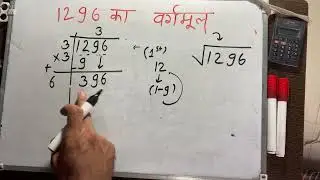 1296 का वर्गमूल
3
3 1296 ←(1st) √1296
×3 -9↓ 12
+ ↓
6 396 (1-9)